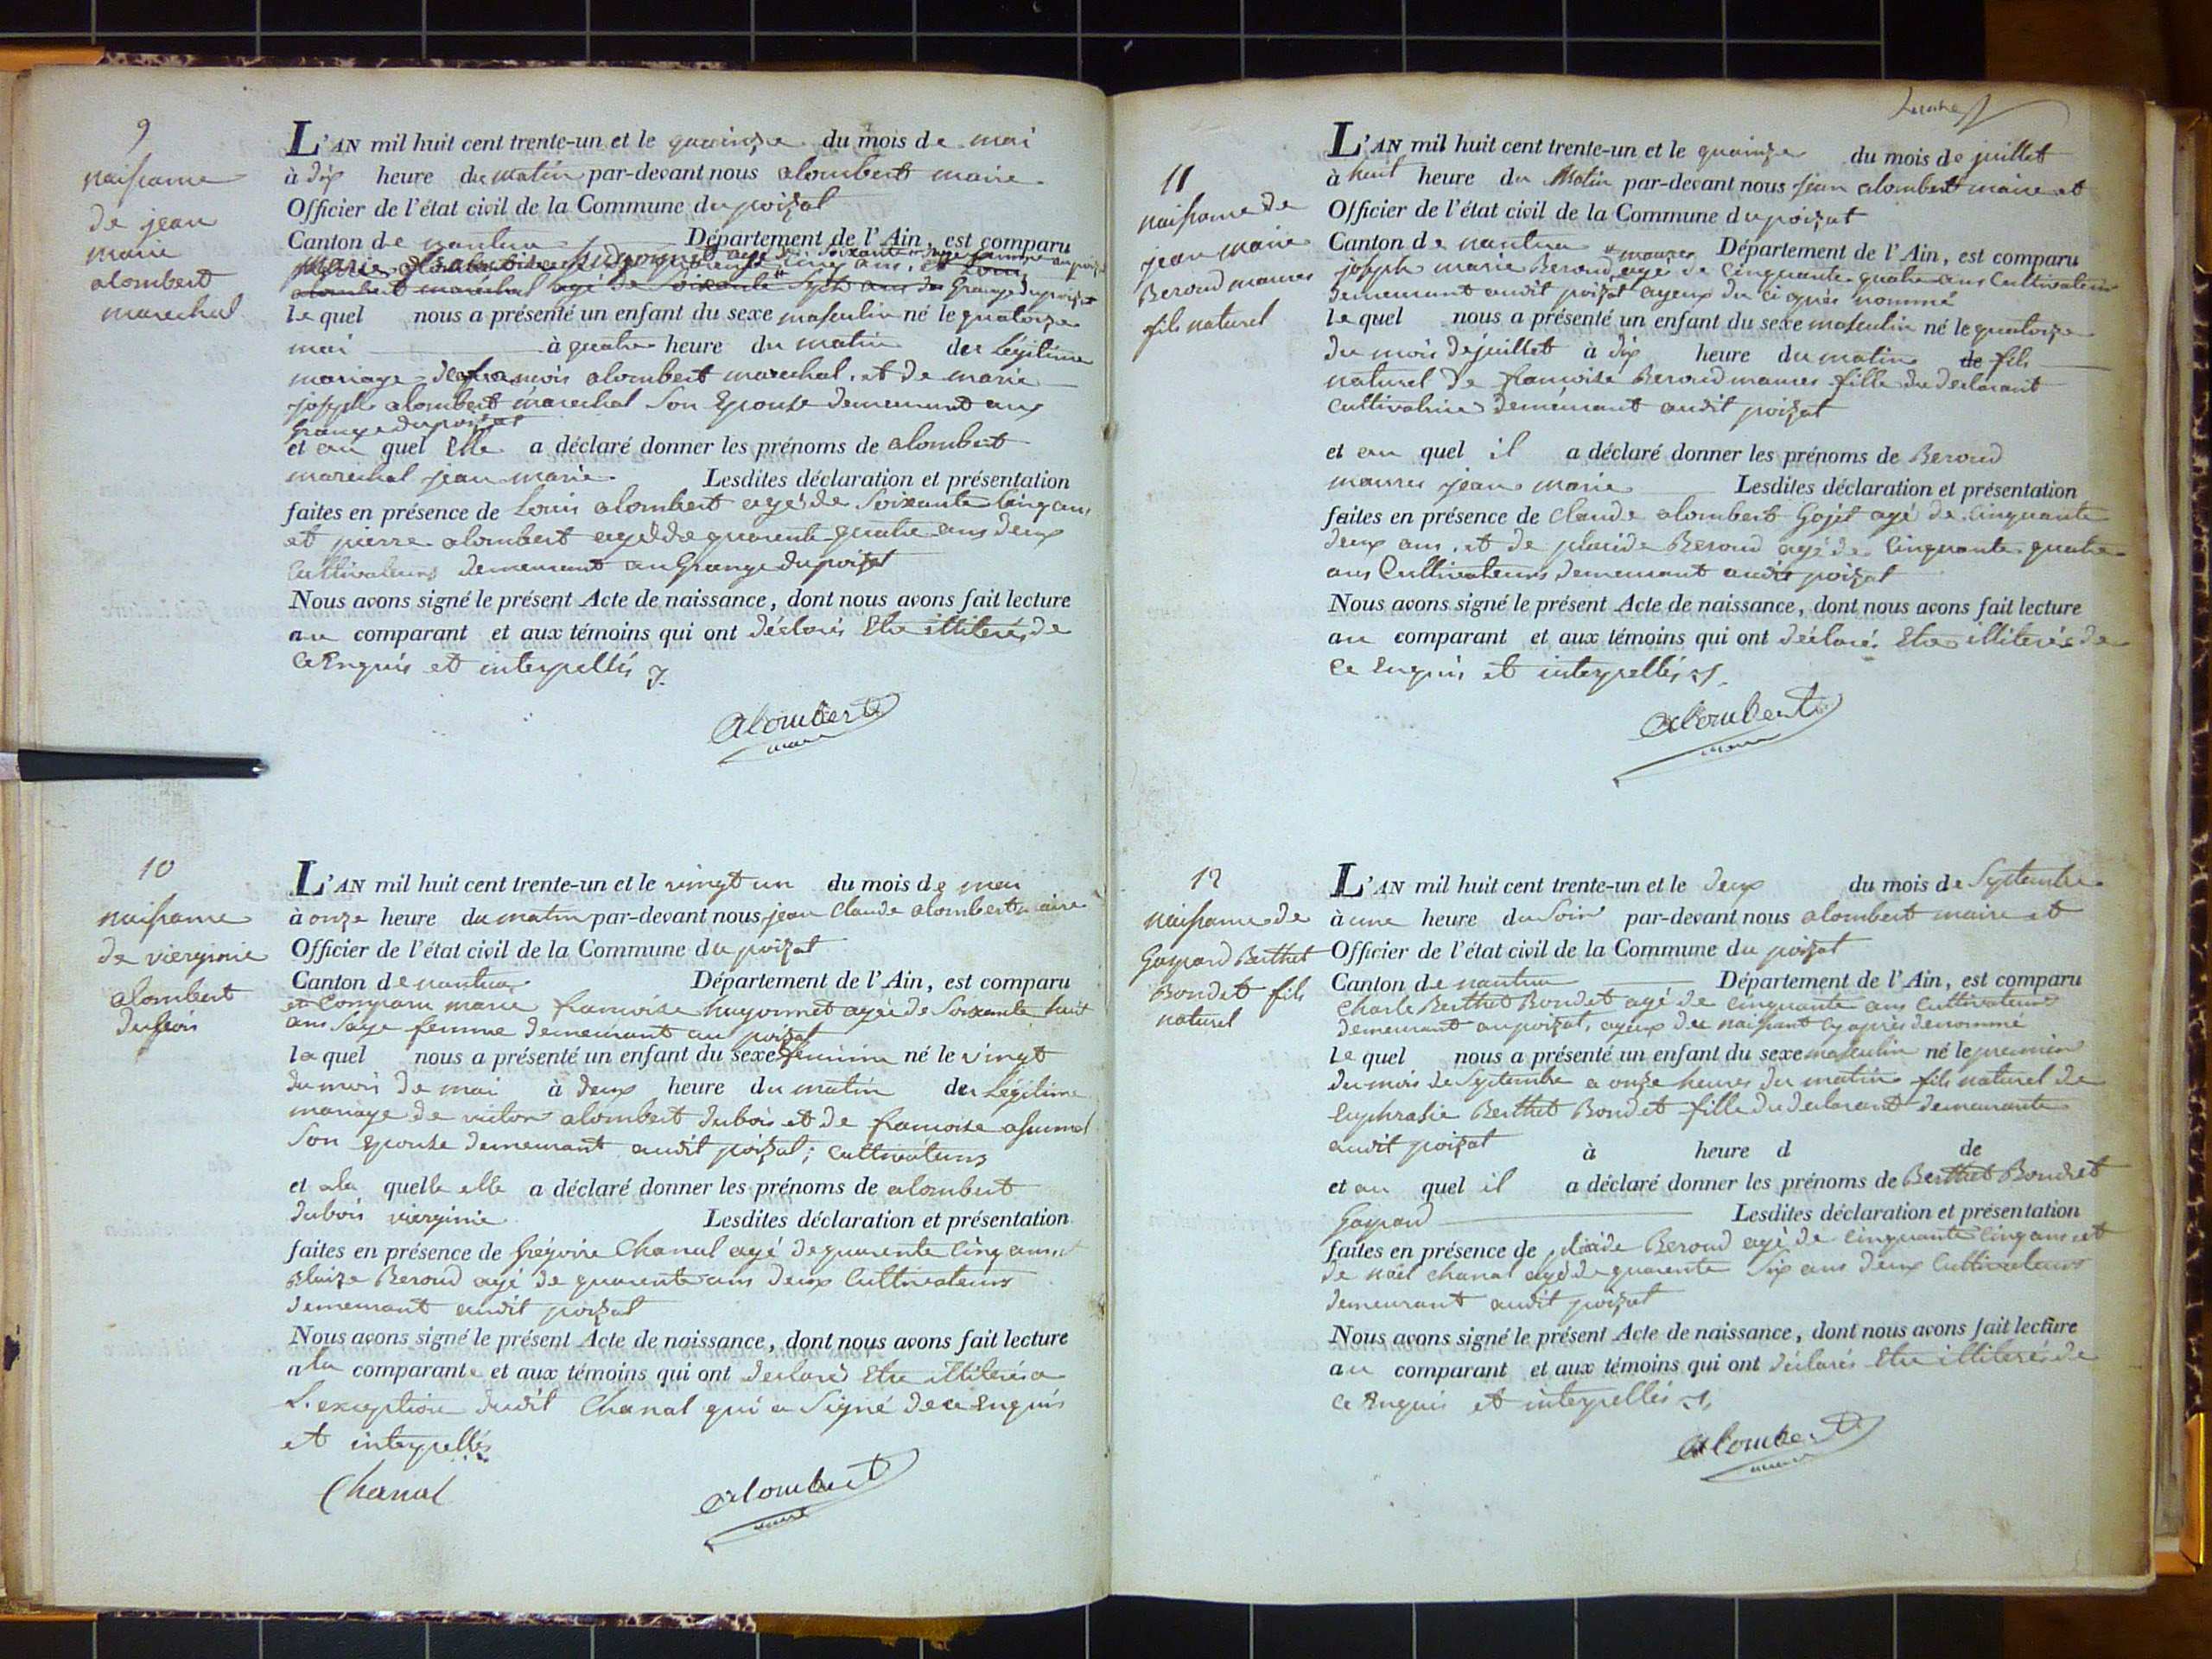 9
naissance
de jean
marie
alombert
marechal
L'AN mil huit cent trente-un et le quainze du mois de mai
à dix heure du matin par-devant nous alombert maire
Officier de l'état civil de la Commune du poizat
Canton de nantua Département de l'Ain, est comparu
marie hugonnet agé de soixante sage femme au poizat
alombert maréchal agé de soixante sept ans de Grange du poizat
le quel nous a présenté un enfant du sexe masculin né le quatorze
mai à quatre heure du matin der Légitime
mariage de francois alombert marechal et de marie
joseph alombert marechal Son Epouse demeurant aux
Grange du poizat
et au quel Elle a déclaré donner les prénoms de alombert
marechal jean marie. Lesdites déclaration et présentation
faites en présence de Louis alombert agé de Soixante Cinq ans
et pierre alombert agé de quarente quatre ans deux
Cultivateurs demeurant au Grange du poizat
Nous avons signé le présent Acte de naissance, dont nous avons fait lecture
au comparant et aux témoins qui ont déclarés Etre illiterés de
Ce Enquis et interpellés
Alombert
maire
10
naissance
de vierginie
alombert
dubois
L'AN mil huit cent trente-un et le vingt un du mois de mai
à onze heure du matin par-devant nous jean Claude alombert maire
Officier de l'état civil de la Commune du poizat
Canton de nantua Département de l'Ain, est comparu
et Comparu marie francoise hugonnet agée de Soixante huit
ans Sage femme demeurant au poizat
la quel nous a présenté un enfant du sexe feminin né le vingt
du mois de mai à deux heure du matin der Légitime
mariage de victor alombert dubois et de francoise
Son epouse demeurant audit poizat; cultivateurs
et ala quelle elle a déclaré donner les prénoms de alombert
dubois vierginie Lesdites déclaration et présentation
faites en présence de Grégoire Chanal agé de quarente Cinq ans et
Blaize Beroud agé de quarente ans deux Cultivateurs
demeurant audit poizat
Nous avons signé le présent Acte de naissance, dont nous avons fait lecture
ala comparante et aux témoins qui ont declarés Etre illiterés a
L'exception dudit Chanal qui a Signé de ce Enquis
et interpellés
Chanal
Alombert
maire
11
naissance de
jean marie
Beroud maures
fils naturel
L'AN mil huit cent trente-un et le quainze du mois de juillet
à huit heure du Matin par-devant nous jean alombert maire et
Officier de l'état civil de la Commune du poizat
Canton de nantua maures Département de l'Ain, est comparu
joseph marie Beroud agé de Cinquante quatre ans Cultivateur
demeurant audit poizat ayeux du ci après nommé
le quel nous a présenté un enfant du sexe masculin né le quatorze
du mois de juillet à dix heure du matin de fils
naturel de francoise Beroud maures fille du declarant
cultivatrice demeurant audit poizat
et au quel il a déclaré donner les prénoms de Beroud
maures jean marie Lesdites déclaration et présentation
faites en présence de Claude alombert Gojet agé de Cinquante
deux ans, et de placide Beroud agé de Cinquante quatre
ans Cultivateurs demeurant audit poizat
Nous avons signé le présent Acte de naissance, dont nous avons fait lecture
au comparant et aux témoins qui ont déclarés Etre illiterés de
Ce Enquis et interpellés
Alombert
maire
12
naissance de
Gaspard Berthet
Bondet fils
naturel
L'AN mil huit cent trente-un et le deux du mois de Septembre
à une heure du Soir par-devant nous alombert maire et
Officier de l'état civil de la Commune du poizat
Canton de nantua Département de l'Ain, est comparu
Charle Berthet Bondet agé de cinquante ans Cultivateur
demeurant au poizat, ayeux du naissant cy après denommé
le quel nous a présenté un enfant du sexe masculin né le premier
du mois de Septembre a onze heures du matin fils naturel de
Euphrasie Berthet Bondet fille du declarant demeurante
audit poizat à heure d de
et au quel il a déclaré donner les prénoms de Berthet Bondet
Gaspard Lesdites déclaration et présentation
faites en présence de placide Beroud agé de cinquante Cinq ans et
de noël chanal agé de quarente Six ans deux Cultivateurs
demeurant audit poizat
Nous avons signé le présent Acte de naissance, dont nous avons fait lecture
au comparant et aux témoins qui ont déclarés Etre illiterés de
Ce Enquis et interpellés
Alombert
maire